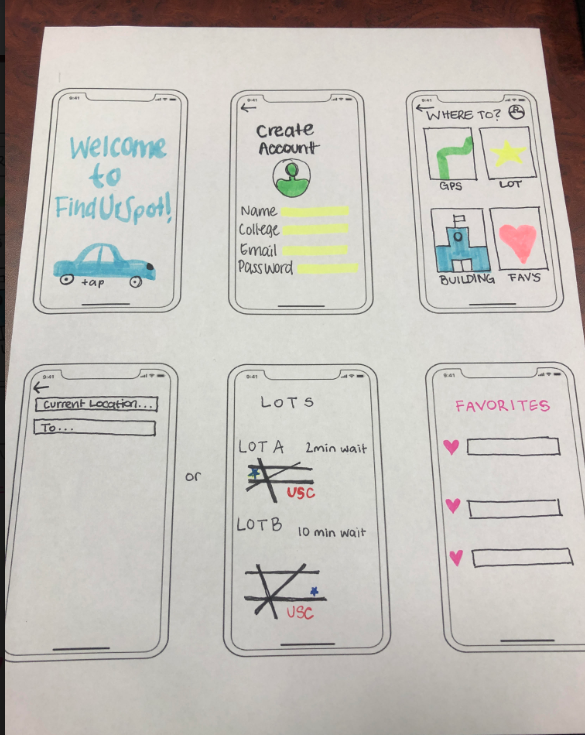 9:41
Welcome
to
FindUrSpot!
tap
9:41
Create
Account
Name
College
Email
Password
9:41
WHERE TO?
GPS
LOT
BUILDING
FAV'S
9:41
Current Location...
To...
or
9:41
LOTS
LOT A 2min wait
USC
LOT B 10 min wait
USC
9:41
FAVORITES